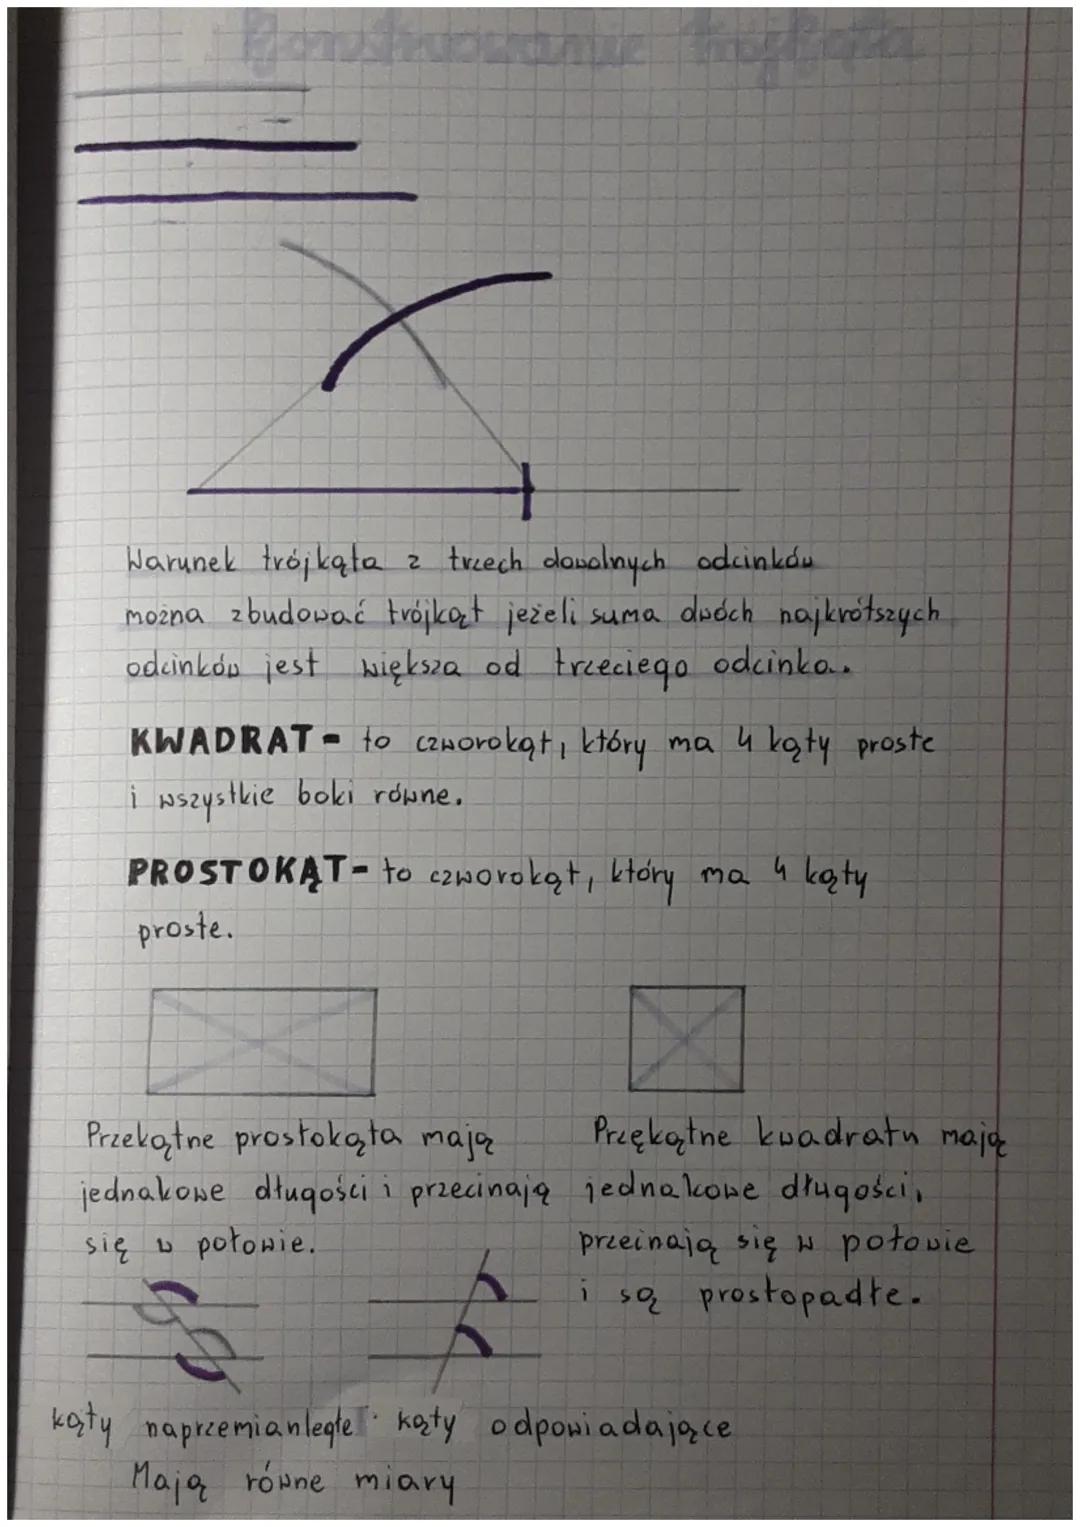 Konstruowanie trójkąta
Warunek trójkąta z trzech dowolnych odcinków
można zbudować trójkąt jeżeli suma dwóch najkrótszych
odcinków jest większa od trzeciego odcinka.
KWADRAT - to czworokąt, który ma 4 kąty proste
i wszystkie boki równe.
PROSTOKĄT - to czworokąt, który ma 4 kąty
proste.
Przekątne prostokąta mają
jednakowe długości i przecinają
się w połowie.
Przękątne kwadratu mają
jednakowe długości,
przeinają się w połowie
i są prostopadłe.
kąty naprzemianległe
kąty odpowiadające
Mają równe miary